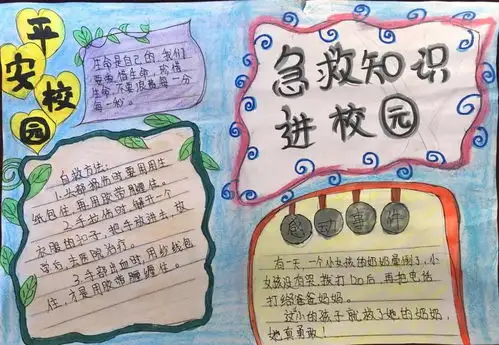 平安校园
生命是自己的,我们
要珍惜生命,珍惜
生命,不要浪费每一分
每一秒。
急救知识
进校园
自救方法:
1.头部砸伤时要用用生
纸包住,再用胶带缠住。
2.手拉伤时,健开一个
衣服的扣子,把手放进去,放
学后,去医院治疗。
3.手部出血时,用纱我包
住,才最用胶带缠住。
感动事件
有一天,一个小女孩的奶奶晕倒了,小
女孩没有哭,拨打120后,再把电话
打给爸爸妈妈。
这小的孩子就救了她的奶奶,
她真勇敢!